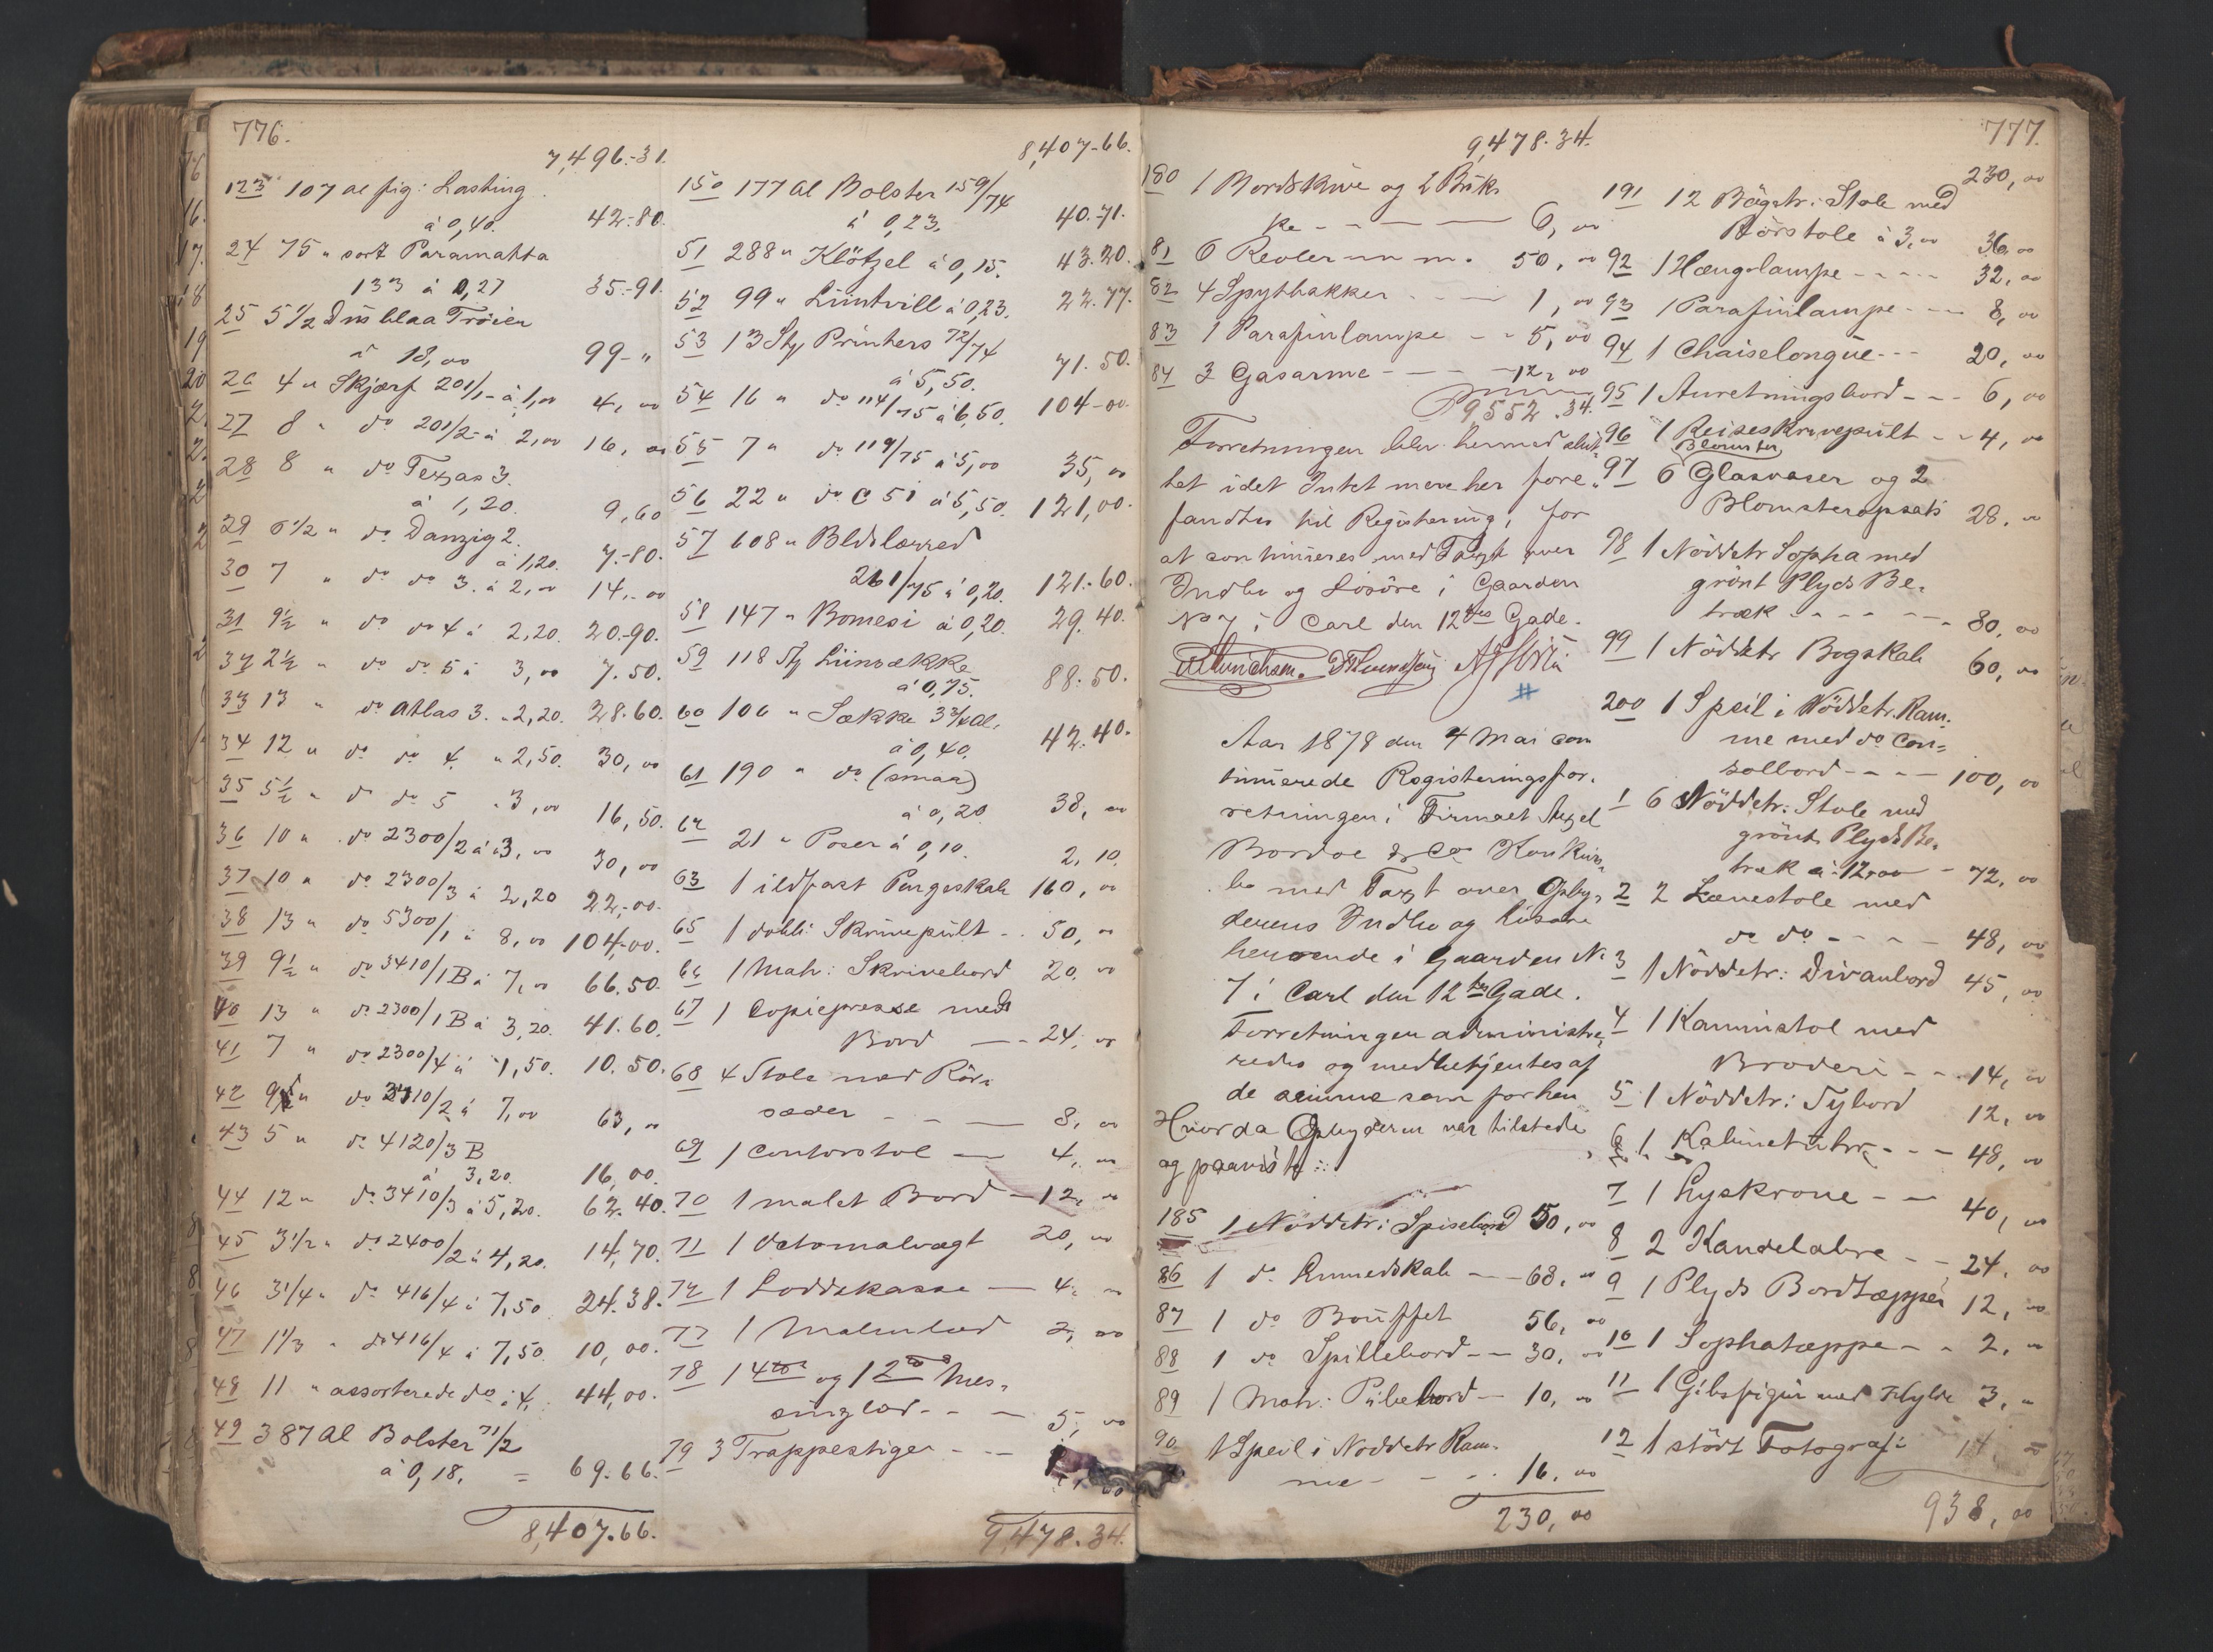 776.
7,496.-31.
123 107 al fig: Lasting
à 0,40. 42-80.
24 75 " sort Paramatta
133 à 0,27 35-91.
25 5 1/2 Dus blaa Tröier
à 18,00 99-"
26 4 " Skjærf 201/1 - à 1,00 4,00
27 8 " do 201/2 - à 2,00 16,00
28 8 " do Texas 3.
à 1,20. 9,60
29 6 1/2 " do Danzig 2.
à 1,20. 7.-80.
30 7 " do do 3. à 2,00 14.-00
31 9 1/2 " do do 4 à 2,20. 20.-90.
32 2 1/2 " do do 5 à 3,00 7.50.
33 13 " do Atlas 3. " 2,20. 28.60.
34 12 " do do 4. " 2,50. 30,00
35 5 1/2 " do do 5 " 3,00 16,50.
36 10 " do 2300/2 à 3,00 30,00
37 10 " do 2300/3 à 2,20 22,-00.
38 13 " do 5300/1 à 8,00 104,-00.
39 9 1/2 " do 3410/1 B à 7,00 66.50.
40 13 " do 2300/1 B à 3,20. 41.60.
41 7 " do 2300/4 à 1,50. 10.50.
42 9 " do 3410/2 à 7,00 63,00
43 5 " do 4120/3 B
à 3,20. 16,00.
44 12 " do 3410/3 à 5,20. 62.40.
45 3 1/2 " do 2400/2 à 4,20. 14,70.
46 3 1/4 " do 416/4 à 7,50 24.38.
47 1 1/3 " do 416/4 à 7,50 10,00.
48 11 " assorterede do à 4, 44,00.
49 387 al Bolster 71/2
à 0,18. = 69.66.
8,407.66.
8,407-66.
150 177 al Bolster 159/74
à 0,23. 40.-71.
51 288 " Klötzel à 0,15. 43.20.
52 99 " Liintvill à 0,23. 22.77.
53 13 Sty Printers 72/74
à 5,50. 71.50.
54 16 " do 114/75 à 6,50. 104-00.
55 7 " do 119/75 à 5,00 35,00
56 22 " do C 51 à 5,50. 121,00.
57 608 " Bldslærred
261/75 à 0,20. 121.-60.
58 147 " Bomesi à 0,20. 29.40.
59 118 Sty Liinsække
à 0,75. 88.50.
60 106 " Sække 3 3/4 al.
à 0,40. 42.40.
61 190 " do (smaa)
à 0,20. 38,00
62 21 " Poser à 0,10. 2.10.
63 1 ildfast Pengeskab 160,00
65 1 dobb: Skrivepult - - 50,00
66 1 Mah: Skrivebord 20.00
67 1 Copiepresse med
Bord - - 24,00
68 4 Stole med Rör-
sæder - - - 8,00
69 1 Contorstol - 4,00
70 1 malet Bord - 12,00
71 1 Detomalvægt 20,00
72 1 Loddekasse - 4,00
77 1 Malmlod 2,00
78 1 4 og 1 2 Mes-
singlod - - - 5,00
79 3 Trappestiger - - -
9,478.34.
777.
9,478.34.
180 1 Bordskive og 2 Buk-
ke - - - - 6,00
81 6 Reoler 50,00
82 4 Spytbakker - - - 1,00
83 1 Parafinlampe - - 5,00
84 3 Gasarme - - - 12,00
9552.34.
Forretningen blev hermed slut-
tet idet Intet mere her fore-
fandtes til Registering, for
at continueres med Taxt over
Indbo og Lösöre i Gaarden
No 7 i Carl den 12tes Gade.
#
Aar 1878 den 4 Mai con
tinuerede Registeringsfor-
retningen i Firmaet Axel
Bordoe & Co Konkurs-
bo med Taxt over Opby-
derens Indbo og Lösöre
beroende i Gaarden No
7 i Carl den 12tes Gade.
Forretningen administre-
redes og medbetjentes af
de samme som forhen
Hvorda Opbyderen var tilstede
og paaviste::
185 1 Nöddetr: Spisebord 50,00
86 1 do Linnedskab - - 68,00
87 1 do Bouffet 56,00
88 1 do Spillebord - - 30,00
89 1 Mah: Pibebord - 10,00
90 1 Speil i Nöddetr Ram-
me - - - - 16,00
230,00
230,00
191 12 Bögetr: Stole med
Rörstole à 3,00 36,00
92 1 Hængelampe - - - - 32,00
93 1 Parafinlampe - - - 8,00
94 1 Chaiselongue - - - 20,00
95 1 Anretningsbord - - - 6,00
96 1 Reiseskrivepult - - 4,00
Blomster
97 6 Glasvaser og 2
Blomsteropsats 28,00
98 1 Nöddetr Sopha med
grönt Plyds Be-
træk - - - - - 80,00
99 1 Nöddetr Bogskab 60,00
200 1 Speil i Nöddetr. Ram-
me med do Con-
solbord - - - - 100,00
1 6 Nöddetr: Stole med
grönt Plyds Be-
træk à 12,00 - 72,00
2 2 Lænestole med
do do - - - - 48,00
3 1 Nöddetr: Divanbord 45,00
4 1 Kaminstol med
Broderi - - - 14,00
5 1 Nöddetr: Sybord 12,00
6 1 Kabinetuhr - - - 48,00
7 1 Lyskrone - - 40,00
8 2 Kandelabre - - 24,00
9 1 Plyds Bordtæppe 12,00
10 1 Sophatæppe - - 2,00
11 1 Gibsfigur med Hylde 3,00
12 1 stört Fotografi
938,00